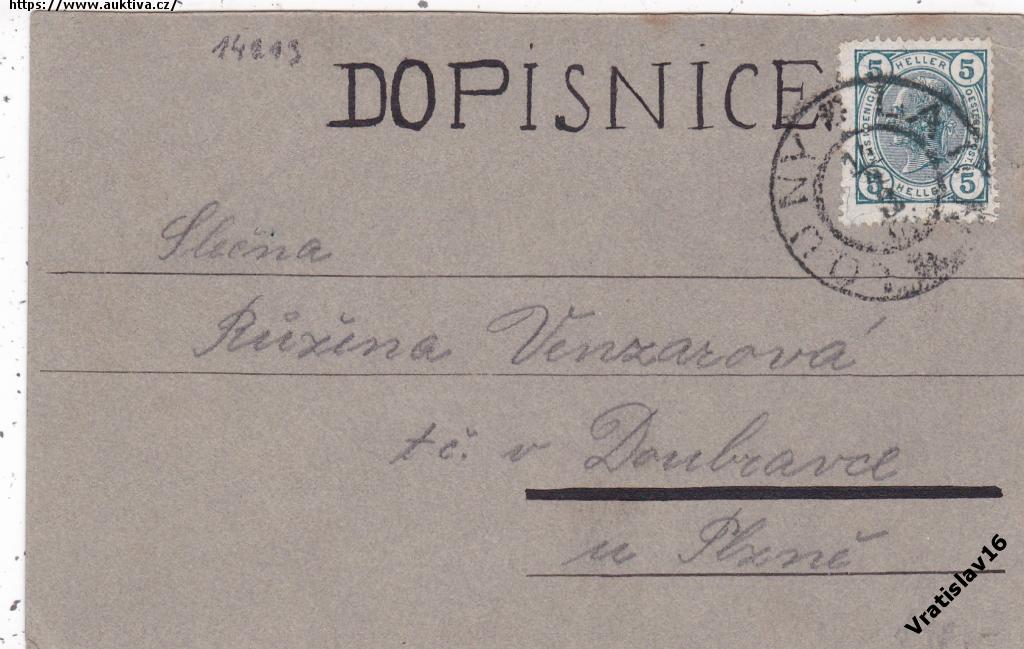 https://www.auktiva.cz/
14213
DOPISNICE
5 HELLER 5
5 HELLER 5
LOUNY
Slečna
Růžena Venzarová
tč. v Doubravce
u Plzně
Vratislav16